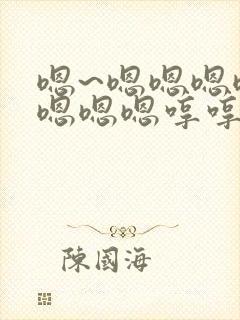 嗯~嗯嗯嗯
嗯嗯嗯哼哼
陳國海